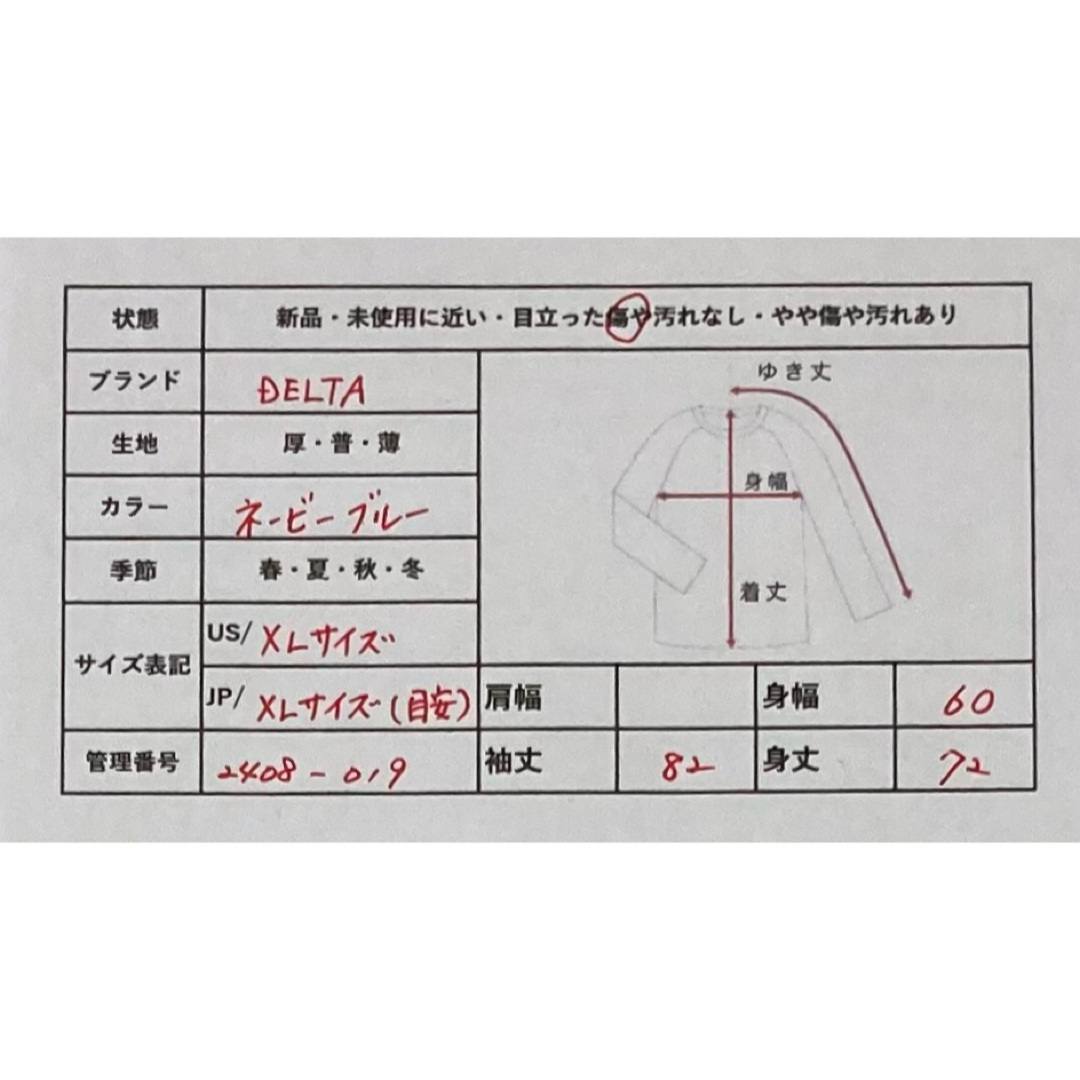 状態 新品・未使用に近い・目立った傷や汚れなし・やや傷や汚れあり
ブランド DELTA
生地 厚・普・薄
カラー ネービーブルー
季節 春・夏・秋・冬
サイズ表記 US/ XLサイズ
JP/ XLサイズ(目安)
管理番号 2408-019
ゆき丈
身幅
着丈
肩幅 身幅 60
袖丈 82 身丈 72